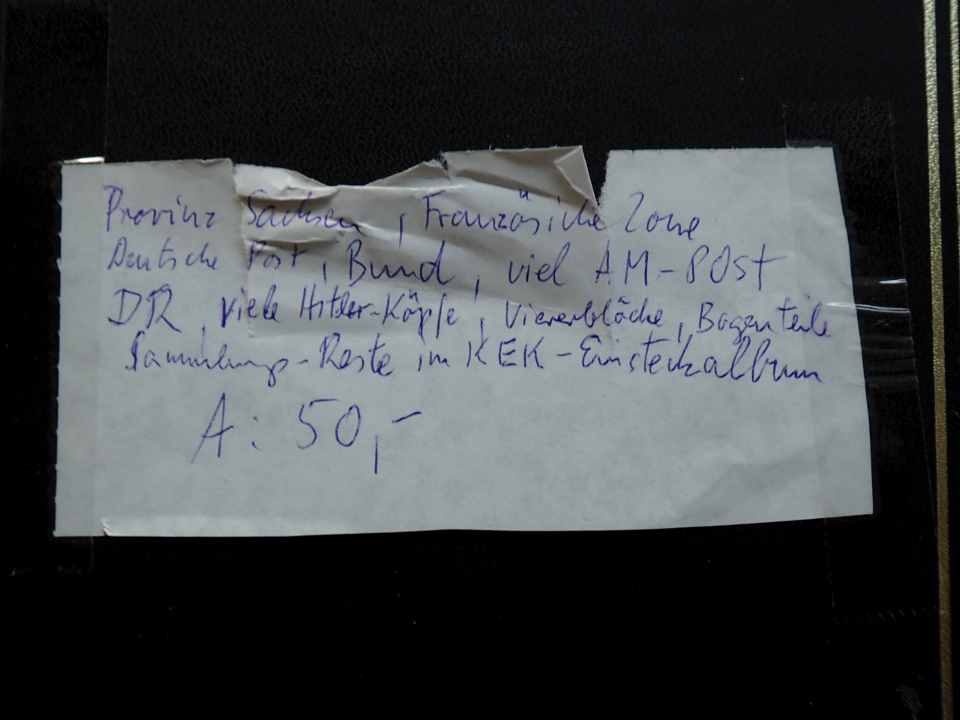 Provinz Sachsen, Französische Zone
Deutsche Post, Bund, viel AM-POSt
DR, viele Hitler-Köpfe, Viererblöcke, Bogenteile
Sammlungs-Reste im KEK-Einsteckalbum
A: 50,-